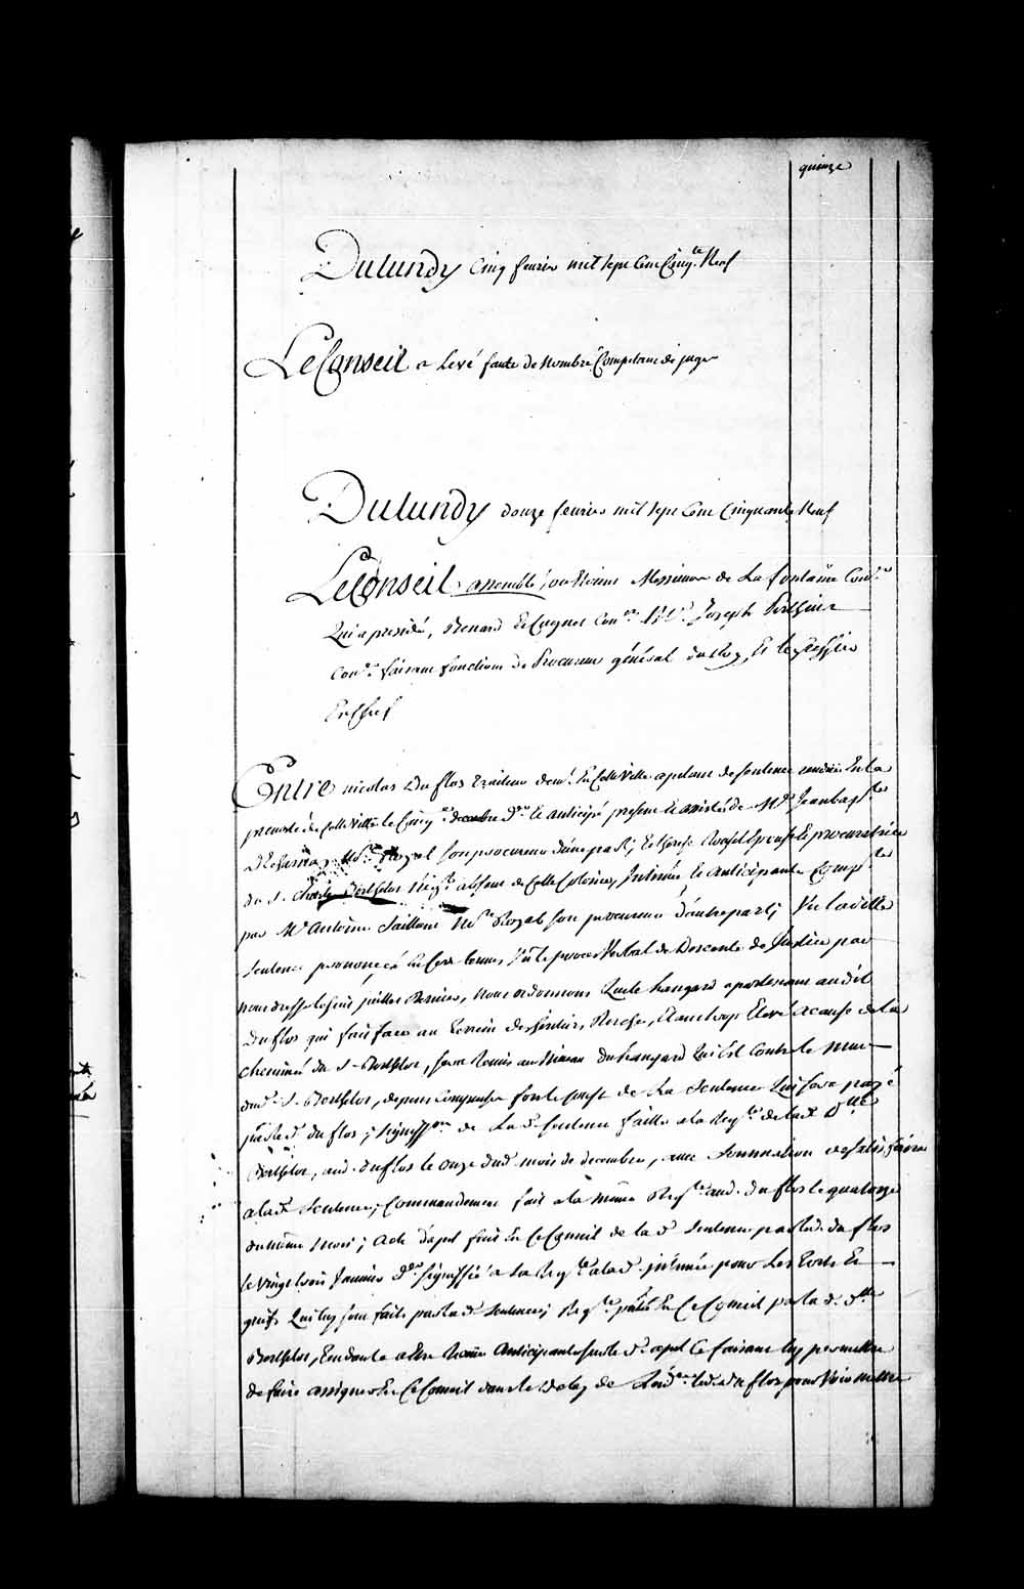 quinze
Du lundy Cinq fevrier mil sept Cent Cinq.te Neuf
Le Conseil a Levé faute de Nombre Compétant de juges
Du lundy douze fevrier mil sept Cent Cinquante Neuf
Le Conseil assemblé où Etoient Messieurs de La fontaine Con.er
Qui a presidé, Benard Et Cugnet Con.ers M.e Joseph Perthuis
Con.er faisant fonctions de Procureur général du Roy, Et le greffier
En Chef
Entre nicolas Duflos traiteur dem.t En Cette Ville apelant de sentence rendüe En la
prevosté de Cette Ville le Cinq decembre d.er Et anticipé present Et assisté de M.e Jean bap.te
N.re Royal son procureur d'une part; Et Epouse Et procuratrice
du S. Charles Berthelot Neg.t absent de Cette Colonie, Intimée Et anticipante Comp.te
par M.e Antoine Saillant N.re Royal son procureur d'autre part; Vu ladite
Sentence prononçée En Ces termes, Vû le procés Verbal de Descente de Justice par
nous dressé le juillet Dernier, Nous ordonnons Que le hangard apartenant audit
Duflos qui fait face au terrein des et trop Elevé a cause de la
cheminée du S. Berthelot, sera Remis au Niveau du hangard Qui Est Contre le mur
dud. S. Berthelot, depens Compensés fors le coust de La Sentence Qui sera payé
par led. Duflos; signiff.on de La d. Sentence faitte a la Req.te de lad. D.lle
Berthelot, aud. Duflos le onze dud. mois de decembre, avec Sommation de satisfaire
a lad. Sentence; Commandement fait a la même Req.te aud. Duflos le quatorze
du même mois; Acte d'apel fait En Ce Conseil de la d. Sentence par led. Duflos
le vingt trois Janvier d.er signiffié a sa Req.te a lad. intimée pour Les torts Et
griefs Qui luy sont faits par la d. Sentence; Req.te En Ce Conseil par la d. D.lle
Berthelot, Tendante a Etre Reçüe Anticipante sur le d. apel Ce faisant luy permettre
de faire assigner En Ce Conseil dans le Delay de led. Duflos pour Voir mettre